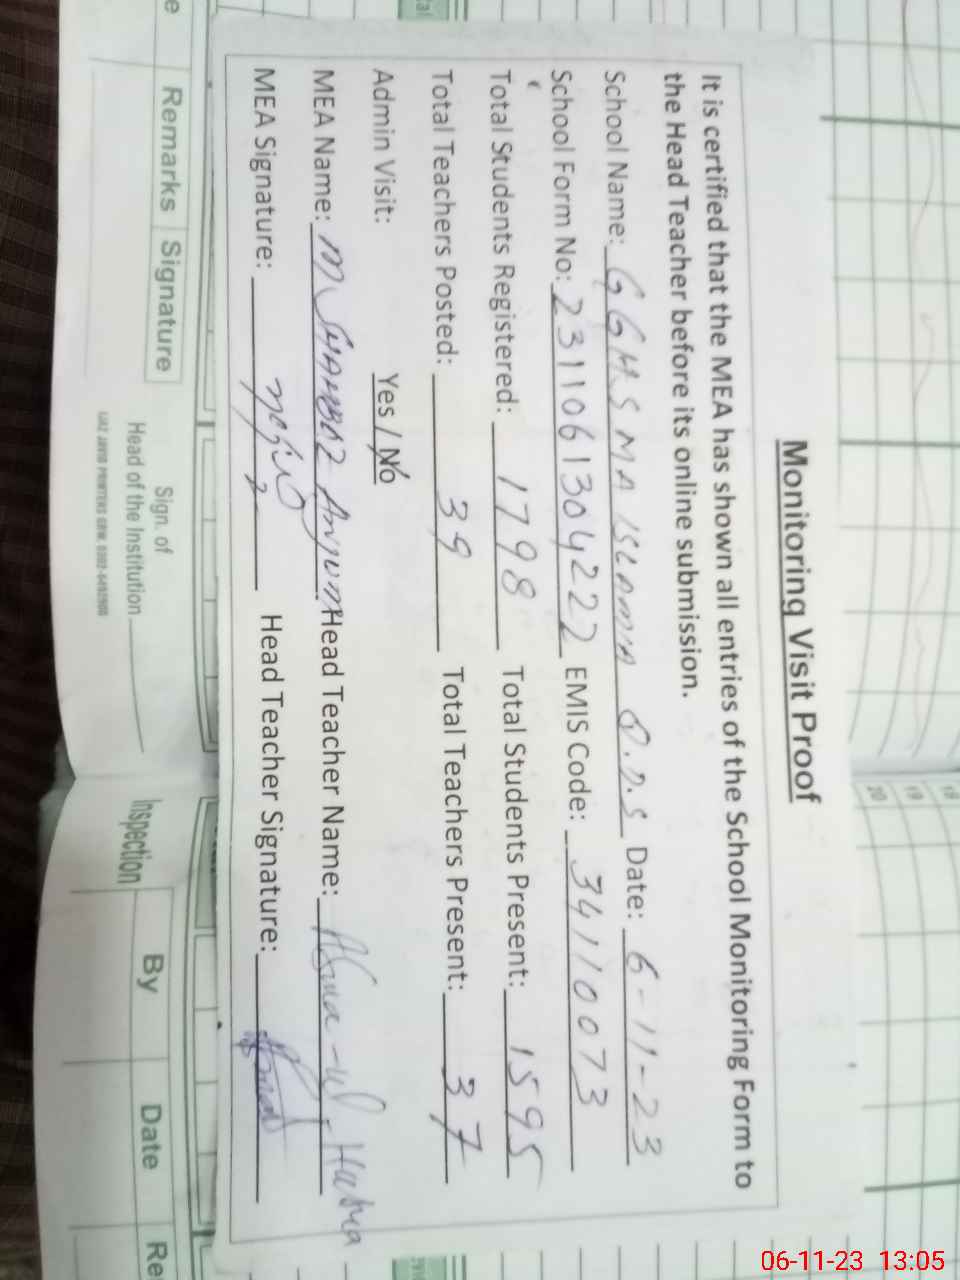 Monitoring Visit Proof
It is certified that the MEA has shown all entries of the School Monitoring Form to
the Head Teacher before its online submission.
School Name: GGHS MA ISLAMIA Q.D.S Date: 6-11-23
School Form No: 2311061304222 EMIS Code: 34110073
Total Students Registered: 1798 Total Students Present: 1595
Total Teachers Posted: 39 Total Teachers Present: 37
Admin Visit: Yes / No
MEA Name: M SHAHBAZ Anjum Head Teacher Name: Asma-ul-Husna
MEA Signature: Head Teacher Signature:
Remarks Signature
Sign. of
Head of the Institution
Inspection By Date Re
18
19
20
06-11-23 13:05